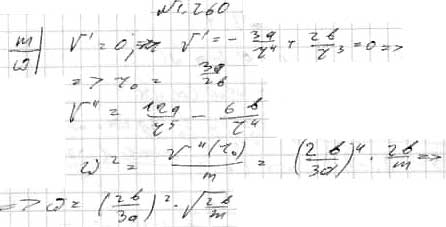 №1.260
m
ω
V' = 0; V' = - 3a/r⁴ + 2b/r³ = 0 =>
=> r₀ = 3a/2b
V'' = 12a/r⁵ - 6b/r⁴
ω² = V''(r₀)/m = (2b/3a)⁴ · 2b/m =>
=> ω = (2b/3a)² · √(2b/m)